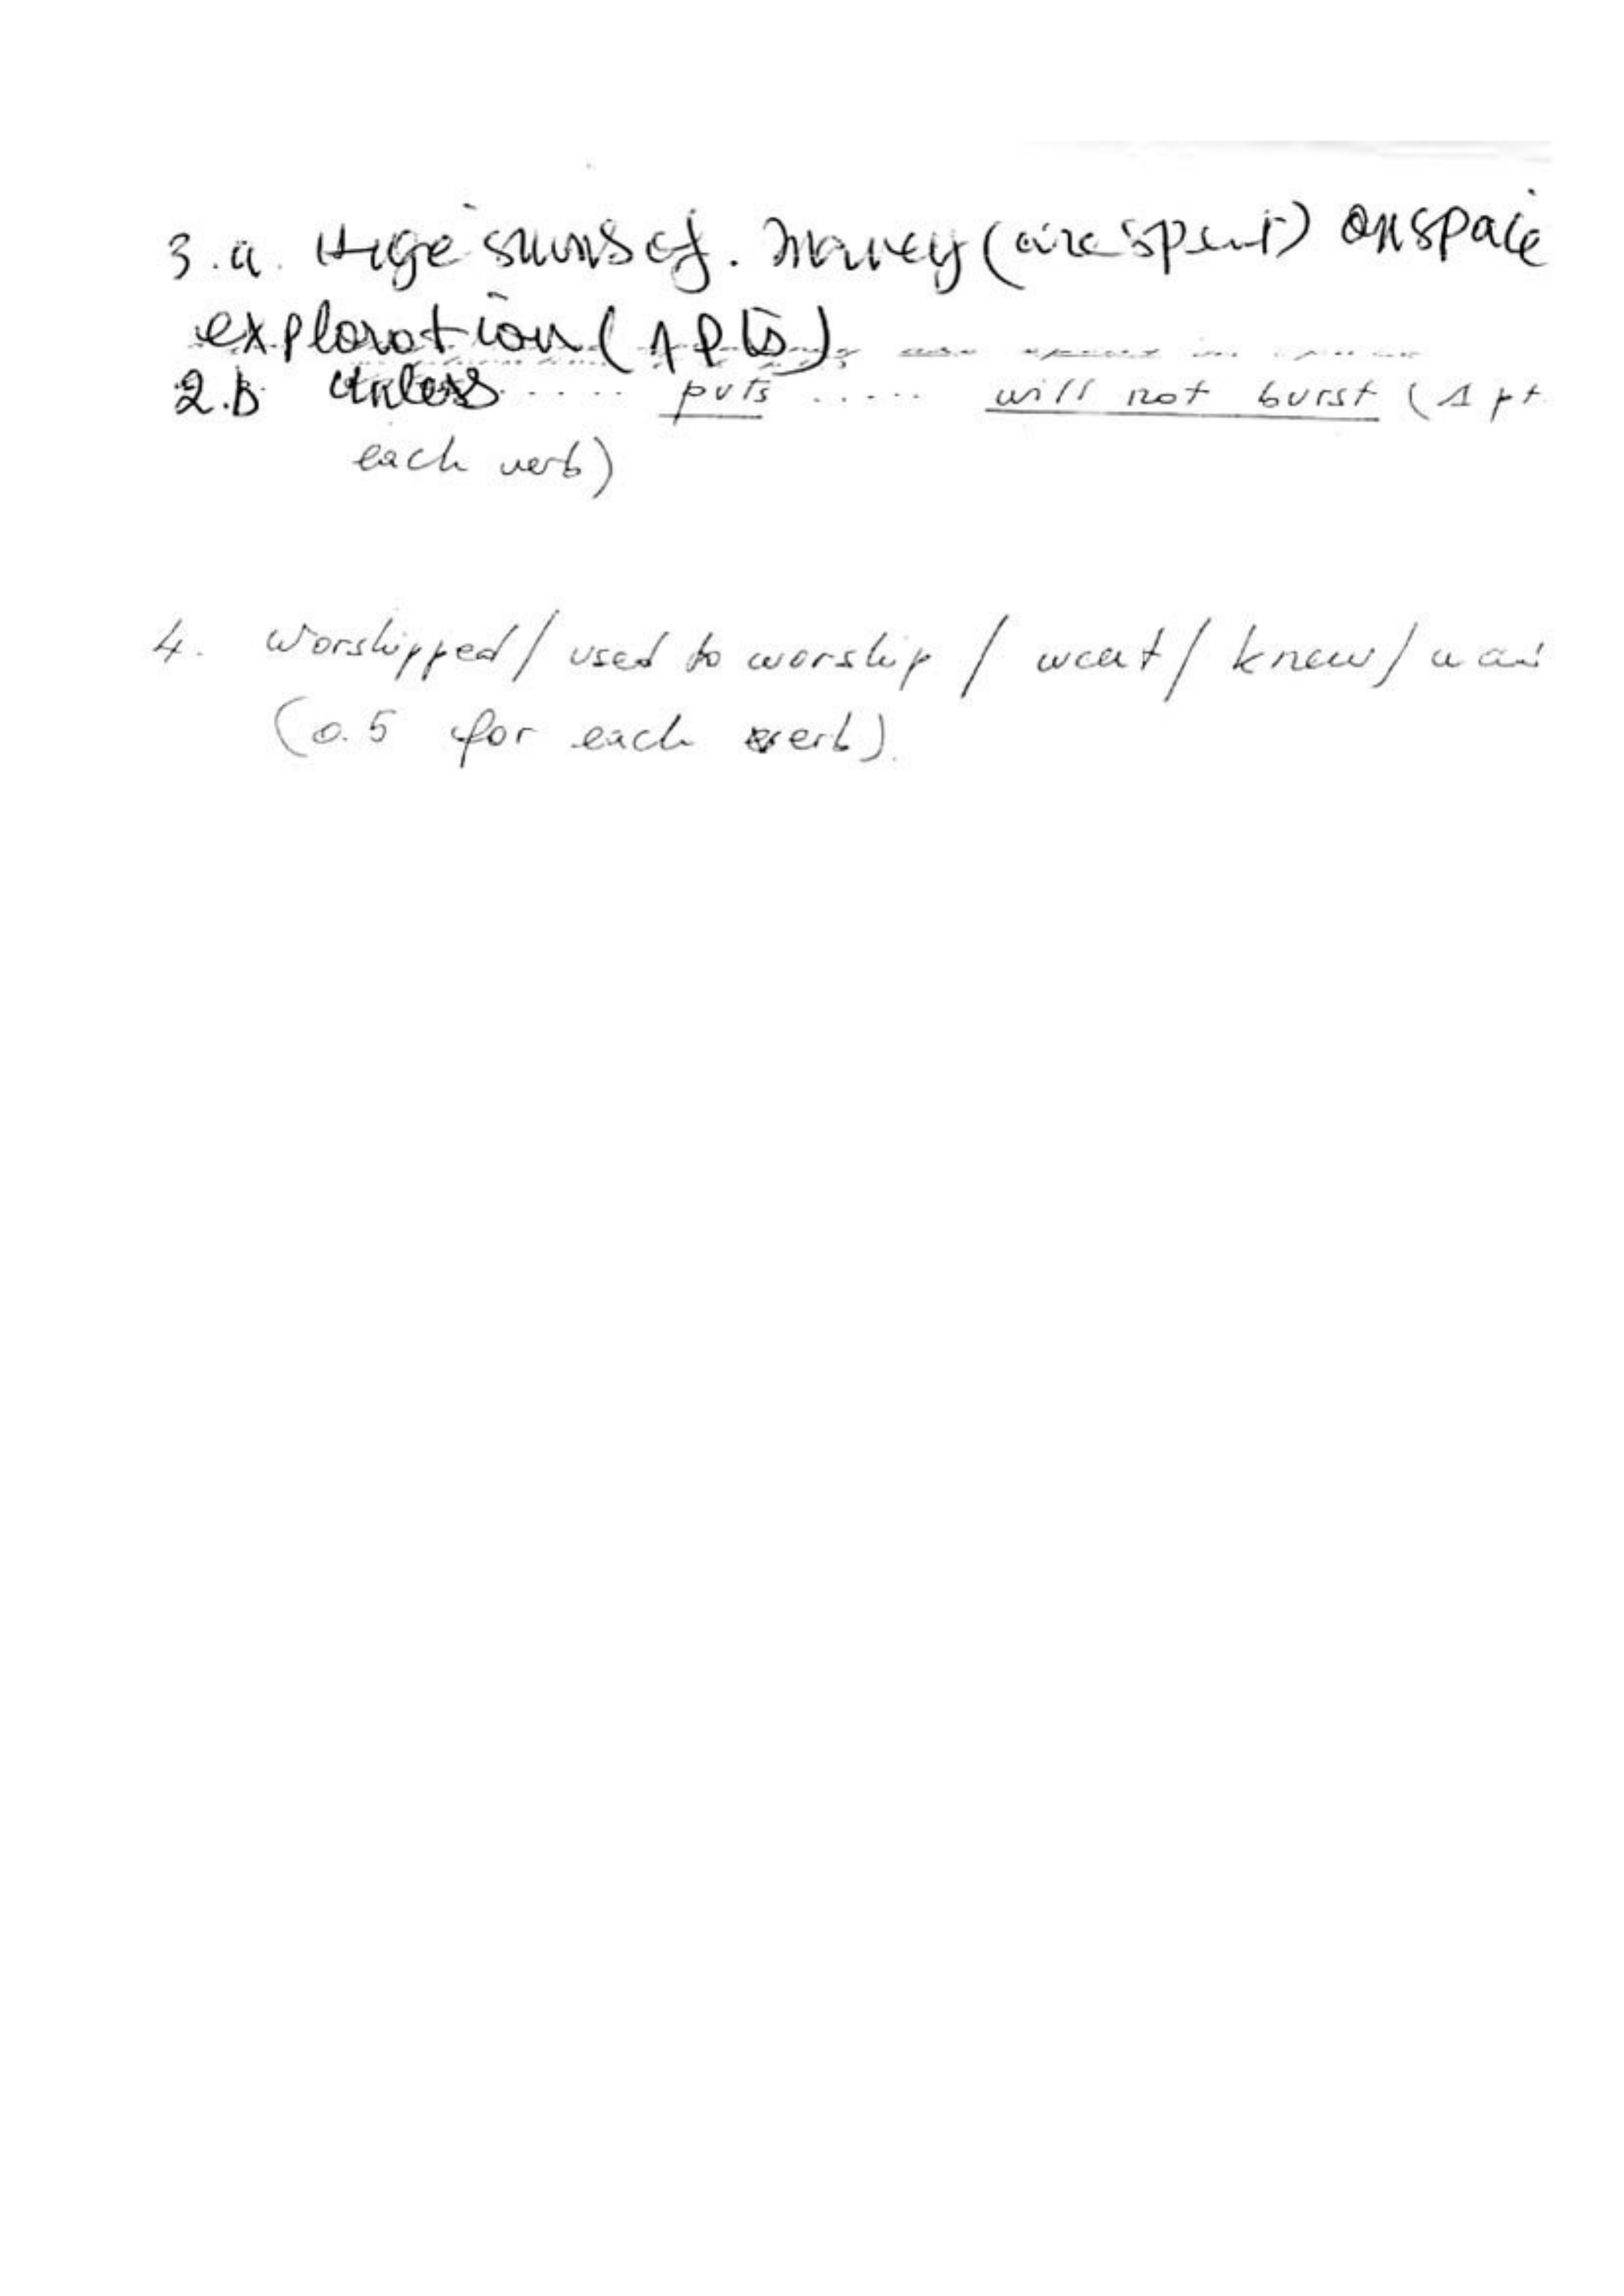 3.a. Huge sums of. money (are spent) on space
exploration (1 pts)
2.b Unless ..... puts ..... will not burst (1 pt
each verb)
4. Worshipped / used to worship / went / knew /
(0.5 for each verb).